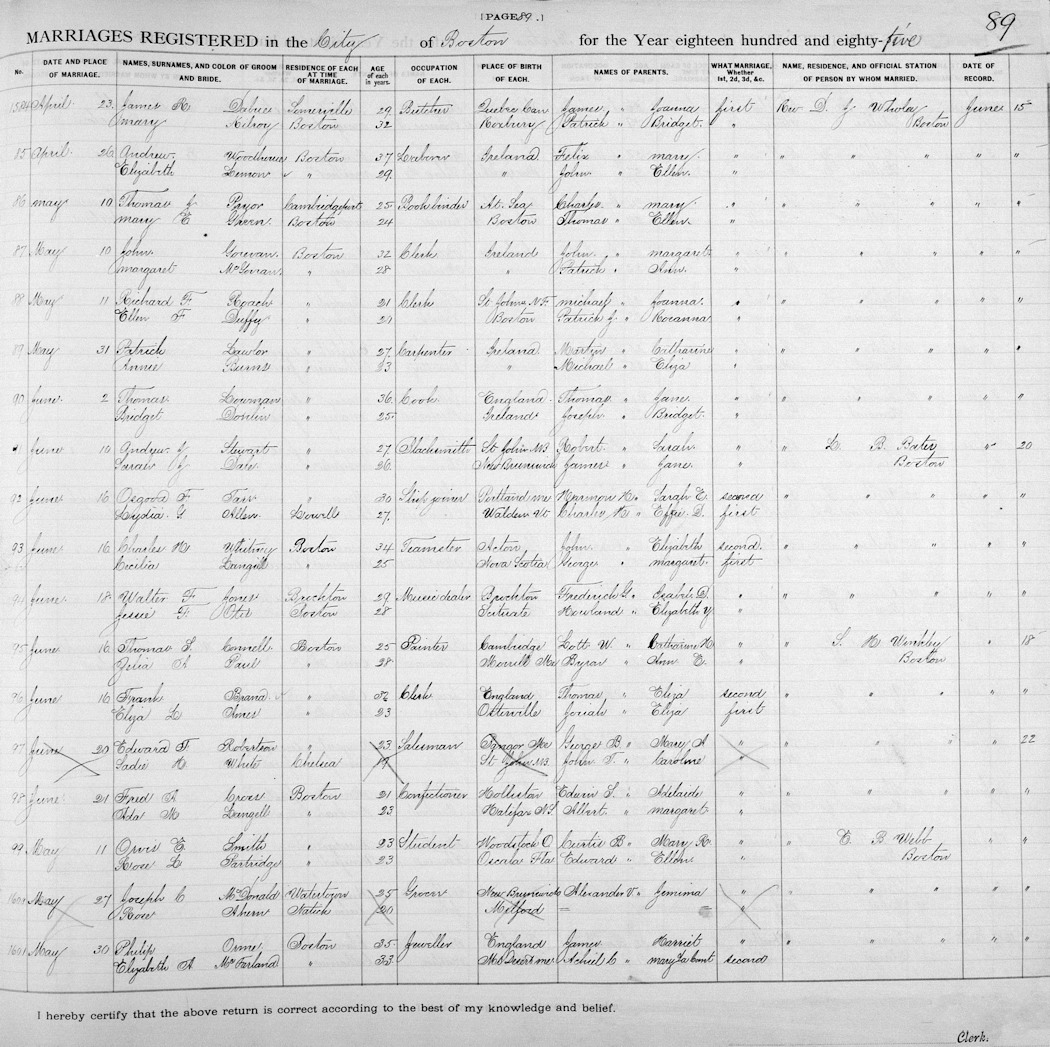 [PAGE 89.]
89
MARRIAGES REGISTERED in the City of Boston for the Year eighteen hundred and eighty-five
No. DATE AND PLACE OF MARRIAGE. NAMES, SURNAMES, AND COLOR OF GROOM AND BRIDE. RESIDENCE OF EACH AT TIME OF MARRIAGE. AGE of each in years. OCCUPATION OF EACH. PLACE OF BIRTH OF EACH. NAMES OF PARENTS. WHAT MARRIAGE, Whether 1st, 2d, 3d, &c. NAME, RESIDENCE, AND OFFICIAL STATION OF PERSON BY WHOM MARRIED. DATE OF RECORD.
April 23 James Somerville 29 Butcher Quebec Can James " Joanna first Rev D. J June 15
Mary Kilroy Boston 32 Roxbury Patrick " Bridget " Boston
85 April 26 Andrew Boston 37 Laborer Ireland Felix " Mary " " " " " " "
Elizabeth Lemon " 29 " John " Ellen "
86 May 10 Thomas J Pryor Cambridgeport 25 Bookbinder At Sea Charles " Mary " " " " " " "
Mary E Green Boston 24 Boston Thomas " Ellen "
87 May 10 John Boston 32 Clerk Ireland John " Margaret " " " " " " "
Margaret McGovran " 28 " Patrick " Ann "
88 May 11 Richard F Roach " 21 Clerk St Johns N.F. Michael " Joanna " " " " " " "
Ellen F Duffy " Boston Patrick J. " Roxanna "
89 May 31 Patrick Lawlor " 27 Carpenter Ireland Martin " Catharine " " " " " " "
Annie Burns " 23 " Michael " Eliza "
90 June 2 Thomas Lowman " 36 Cook England Thomas " Jane " " " " " " "
Bridget Donlin " 25 Ireland Joseph " Bridget "
91 June 10 Andrew J Stewart " 27 Blacksmith St John N.B Robert " Sarah " " L. B. Bates " 20
Sarah J " 26 New Brunswick James " Jane " Boston
92 June 16 Osgood F " 30 Ship joiner Portland Me Harmon H. " Sarah E. second " " " " " "
Lydia G Allen Lowell 27 Walden Vt Charles H " Effie D. first
93 June 16 Charles H Whitney Boston 34 Teamster Acton John " Elizabeth second " " " " " "
Cecilia Langill " 25 Nova Scotia George " Margaret first
94 June 18 Walter F Jones Brockton 29 Music dealer Brockton Frederick G. " Isabel D. " " " " " " "
Jessie F. Otis Boston 28 Scituate Howland " Elizabeth Y "
95 June 16 Thomas L Connell Boston 25 Painter Cambridge Lott W. " Catharine H " " S. H Winkley " 18
Zelia A Paul " 28 Morrill Me Byron " Ann E. " Boston
96 June 16 Frank Brand " 32 Clerk England Thomas " Eliza second " " " " " "
Eliza L Ames " 23 Osterville Josiah " Eliza first
97 June 20 Edward F. Robertson " 23 Salesman Bangor Me George B. " Mary A " " " " " " 22
Sadie H White Chelsea 19 St John N.B. John T. " Caroline "
98 June 21 Fred A Cross Boston 21 Confectioner Holliston Edwin S. " Adelaide " " " " " " "
Ada M Langell " 23 Halifax N.S. Albert " Margaret "
99 May 11 Orris E. Smith " 23 Student Woodstock O Curtis B " Mary R. " " E B Webb " "
Rose L Partridge " 23 Oscola Fla Edward " Ellen " Boston
1600 May 27 Joseph C McDonald Watertown 25 Grocer New Brunswick Alexander V. " Jemima " " " " " " "
Rose Ahern Natick 20 Milford = = "
1601 May 30 Philip Orme Boston 25 Jeweller England James Harriet " " " " " " "
Elizabeth A McFarland " 33 Mt Desert Me second
I hereby certify that the above return is correct according to the best of my knowledge and belief.
Clerk.